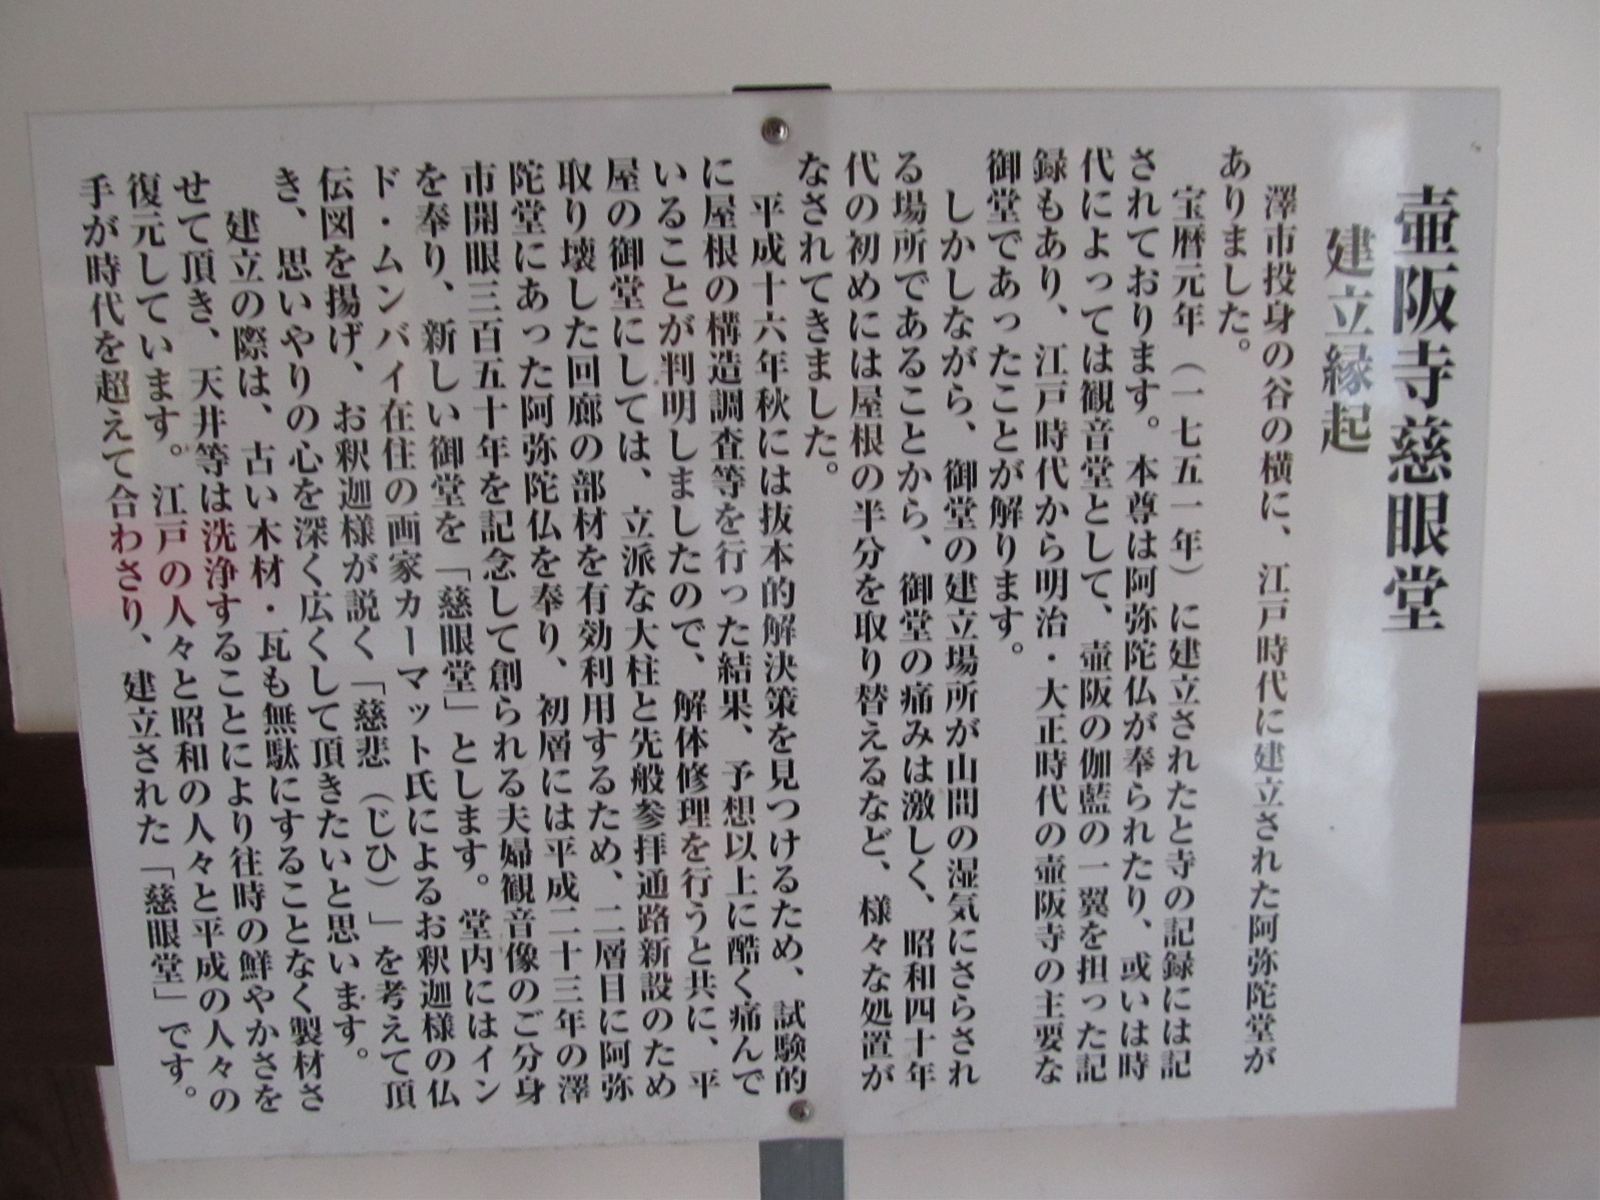 壷阪寺慈眼堂
建立縁起
澤市投身の谷の横に、江戸時代に建立された阿弥陀堂が
ありました。
宝暦元年（一七五一年）に建立されたと寺の記録には記
されております。本尊は阿弥陀仏が奉られたり、或いは時
代によっては観音堂として、壷阪の伽藍の一翼を担った記
録もあり、江戸時代から明治・大正時代の壷阪寺の主要な
御堂であったことが解ります。
しかしながら、御堂の建立場所が山間の湿気にさらされ
る場所であることから、御堂の痛みは激しく、昭和四十年
代の初めには屋根の半分を取り替えるなど、様々な処置が
なされてきました。
平成十六年秋には抜本的解決策を見つけるため、試験的
に屋根の構造調査等を行った結果、予想以上に酷く痛んで
いることが判明しましたので、解体修理を行うと共に、平
屋の御堂にしては、立派な大柱と先般参拝通路新設のため
取り壊した回廊の部材を有効利用するため、二層目に阿弥
陀堂にあった阿弥陀仏を奉り、初層には平成二十三年の澤
市開眼三百五十年を記念して創られる夫婦観音像のご分身
を奉り、新しい御堂を「慈眼堂」とします。堂内にはイン
ド・ムンバイ在住の画家カーマット氏によるお釈迦様の仏
伝図を揚げ、お釈迦様が説く「慈悲（じひ）」を考えて頂
き、思いやりの心を深く広くして頂きたいと思います。
建立の際は、古い木材・瓦も無駄にすることなく製材さ
せて頂き、天井等は洗浄することにより往時の鮮やかさを
復元しています。江戸の人々と昭和の人々と平成の人々の
手が時代を超えて合わさり、建立された「慈眼堂」です。